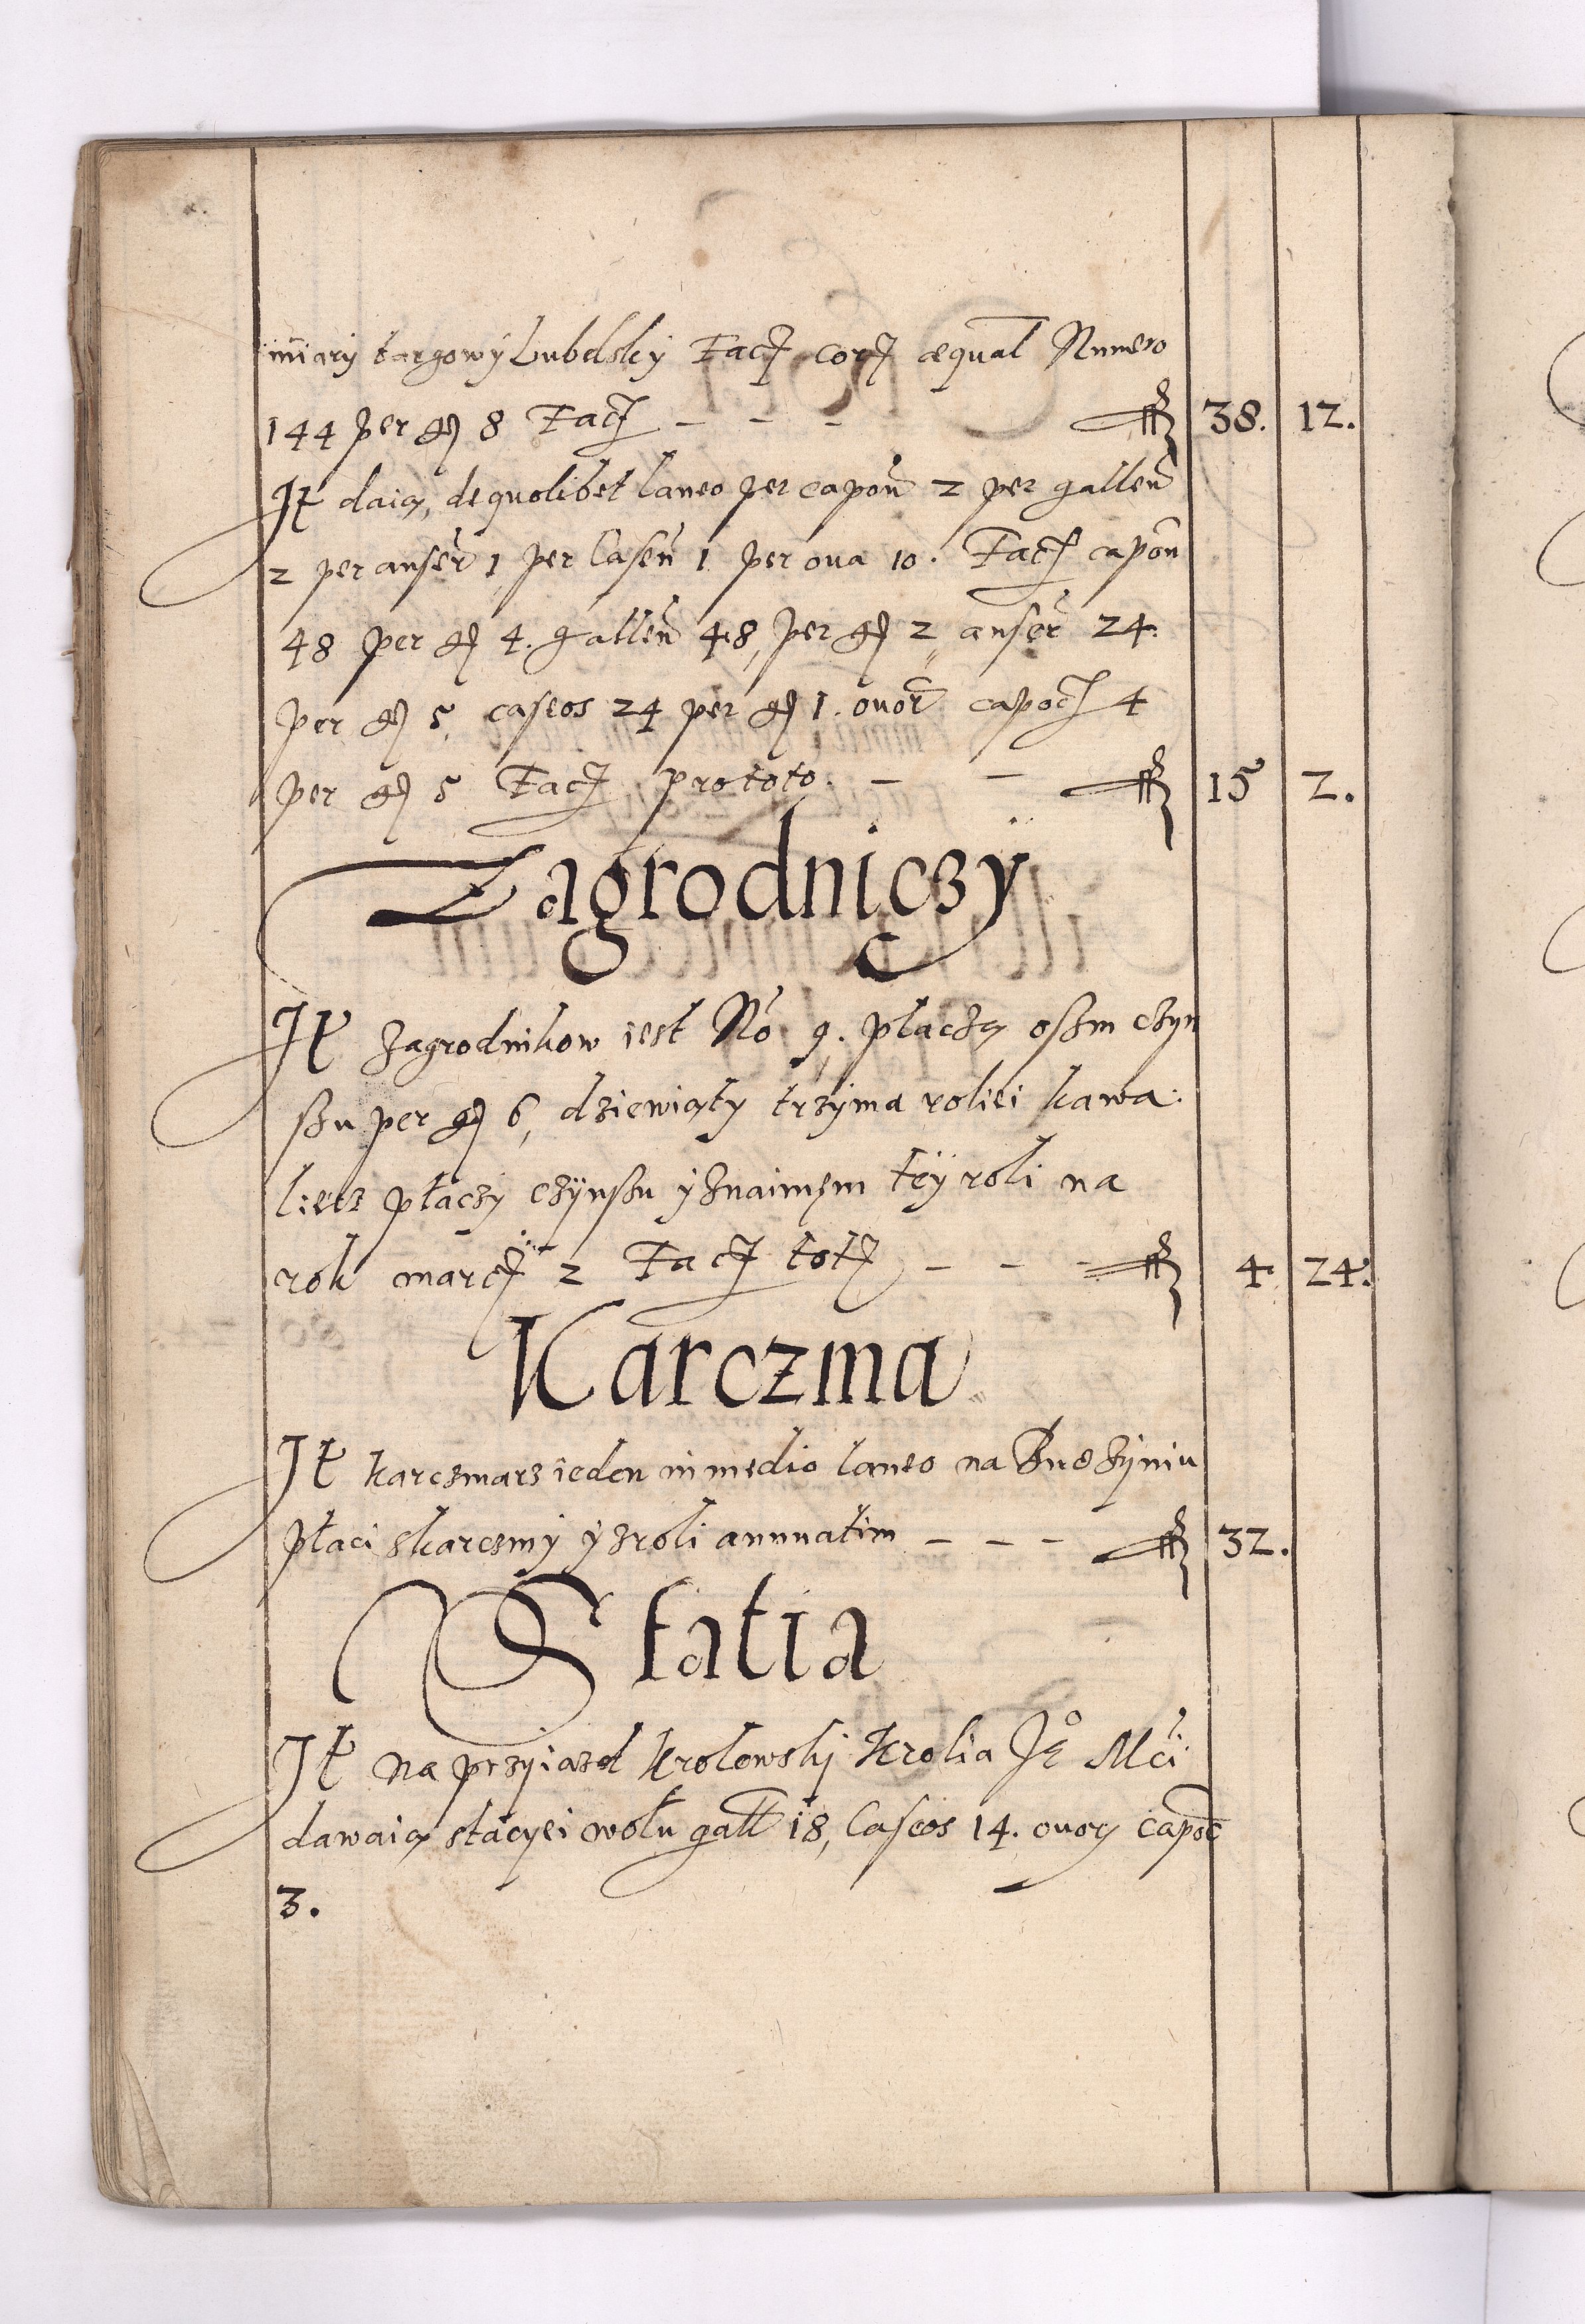 miary targowy Lubelsky Facȷ̃ corȷ̃ æqual Numero
144 per gȷ̃ 8 Facȷ̃ - - - fl 38. 12.
It daią, de quolibet laneo per capoñ 2 per galleñ
2 per anseř 1 per Caseũ 1 per oua 10. Facȷ̃ capoñ
48 per gȷ̃ 4. galleñ 48, per gȷ̃ 2, anseř 24.
per gȷ̃ 5, caseos 24 per gȷ̃ 1. ouoř capocȷ̃ 4
per gȷ̃ 5 Facȷ̃ pro toto. - - fl 15 2.
Zagrodniczy
It zagrodnikow iest No 9. płaczą oszm czyn
szu per gȷ̃ 6, dziewiąty trzyma roliei kawa:
liecz płaczy czynszu y znaimem tey roli na
rok marcȷ̃ 2 Facȷ̃ totȷ̃ - - - fl 4 24.
Karczma
It karczmarz ieden in medio laneo na
płaci skarczmy y zroli annuatim - - - fl 32.
Statia
It na przyiazd krolowskj Krolia Je° Mci
dawaią stacyei wołu gałł 18, Caseos 14. ouorȷ̃ capoc̃
3.